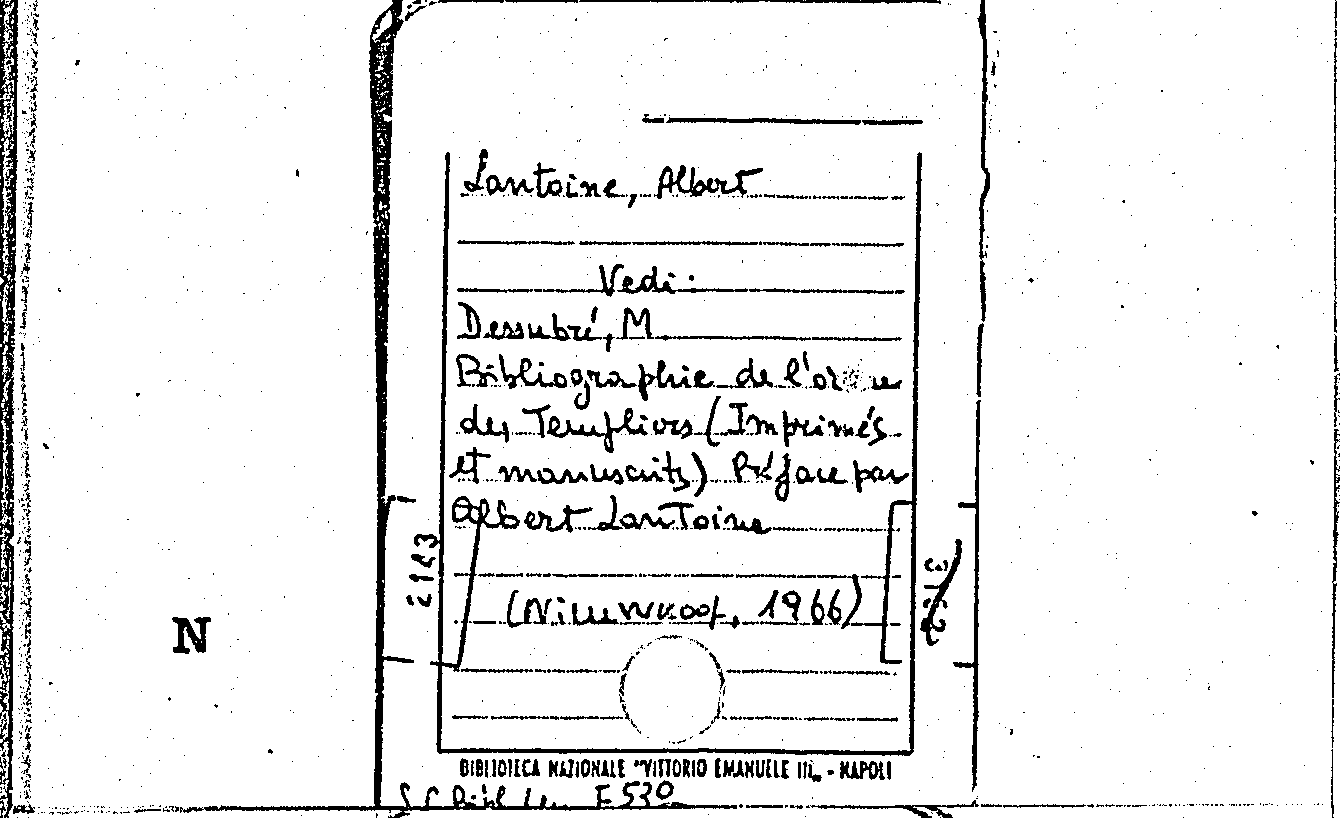 Lantoine, Albert
Vedi:
Dessubré, M.
Bibliographie de l'ordre
des Templiers (Imprimés
et manuscrits) Préface par
Albert Lantoine
(Nieuwkoop, 1966)
N
BIBLIOTECA NAZIONALE "VITTORIO EMANUELE III„ - NAPOLI
F 530